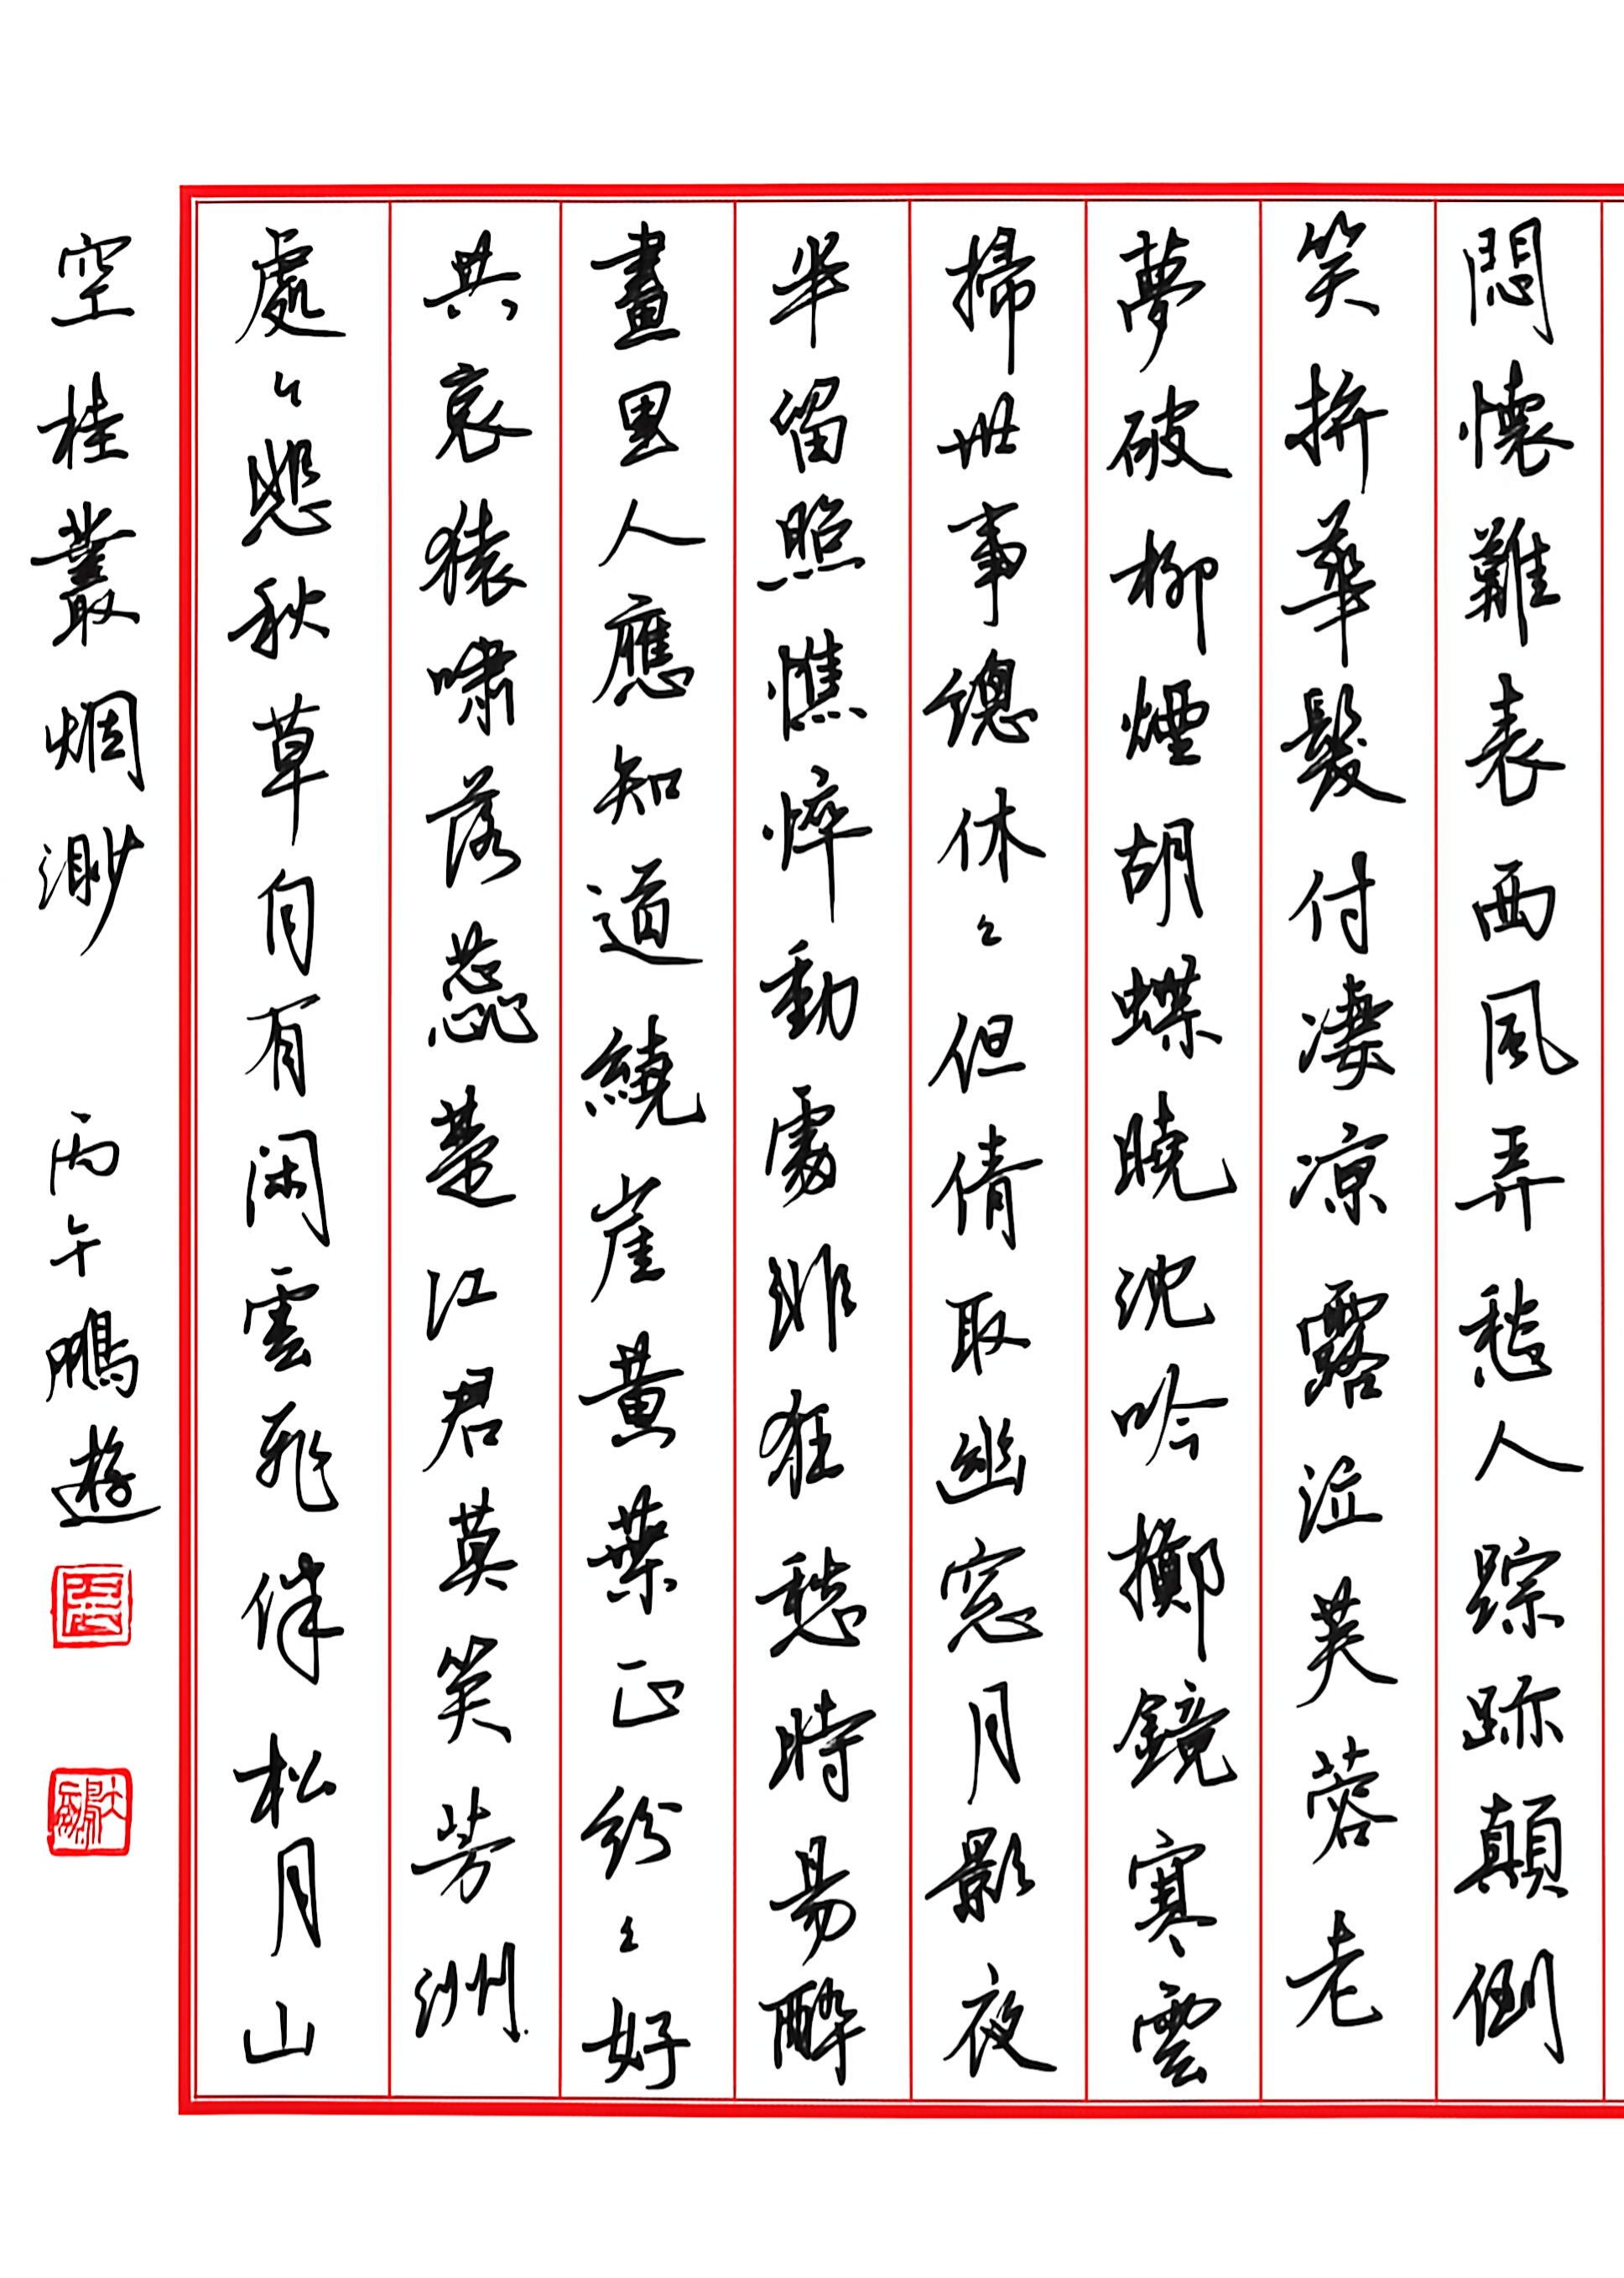 悶懷難表西風弄愁人踪跡顛倒
笑拚華髮付凄涼露泣芙蓉老
夢破柳煙胡蝶曉沈吟擲鏡寒雲
掃世事總休々但倩取幽窓月影夜
半留照憔悴動處非狂愁時易醉
畫里人應知道繞崖黃葉正紛々好
共哀猿嘯落蕊楚江君莫笑芳洲
處々悲秋草自有閑雲飛伴松月山
空桂叢烟渺 丙午鵬遊